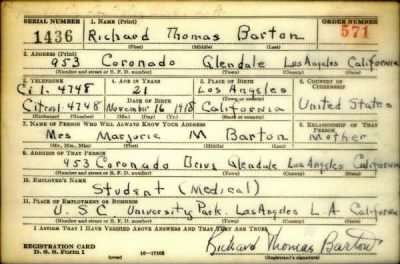 SERIAL NUMBER 1. NAME (Print) ORDER NUMBER
1436 Richard Thomas Barton 571
(First) (Middle) (Last)
2. ADDRESS (Print)
953 Coronado Glendale Los Angeles California
(Number and street or R. F. D. number) (Town) (County) (State)
3. TELEPHONE 4. AGE IN YEARS 5. PLACE OF BIRTH 6. COUNTRY OF CITIZENSHIP
Ci 1. 4748 21 Los Angeles
DATE OF BIRTH (Town or county)
Citrus1-4748 November 16 1918 California United States
(Exchange) (Number) (Mo.) (Day) (Yr.) (State or country)
7. NAME OF PERSON WHO WILL ALWAYS KNOW YOUR ADDRESS 8. RELATIONSHIP OF THAT PERSON
Mrs Marjorie M Barton Mother
(Mr., Mrs., Miss) (First) (Middle) (Last)
9. ADDRESS OF THAT PERSON
953 Coronado Drive Glendale Los Angeles California
(Number and street or R. F. D. number) (Town) (County) (State)
10. EMPLOYER'S NAME
Student (Medical)
11. PLACE OF EMPLOYMENT OR BUSINESS
U. S. C University Park. Los Angeles L. A California
(Number and street or R. F. D. number) (Town) (County) (State)
I AFFIRM THAT I HAVE VERIFIED ABOVE ANSWERS AND THAT THEY ARE TRUE.
REGISTRATION CARD
D. S. S. Form 1 16—17105 Richard Thomas Barton
(Registrant's signature)